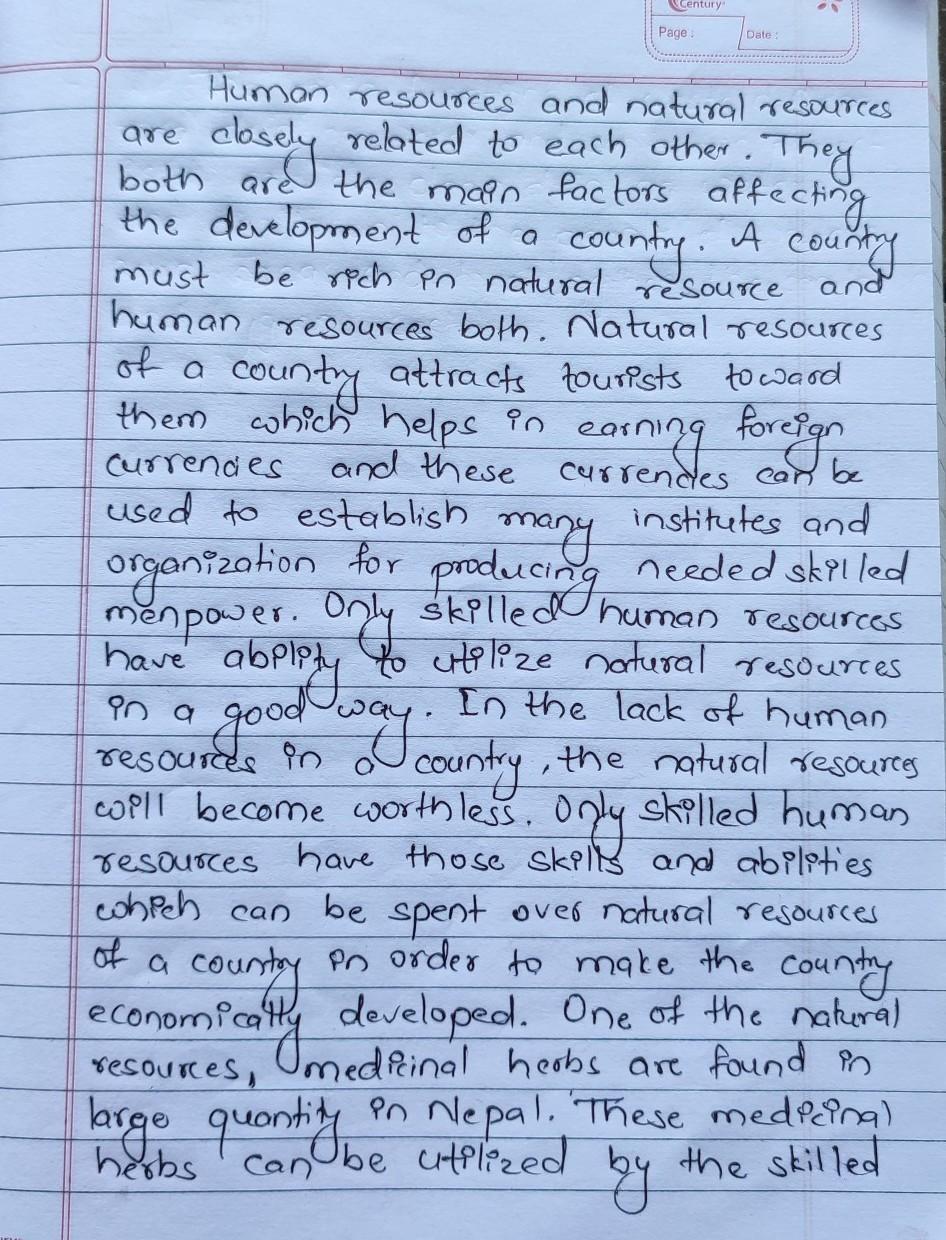 Century
Page :
Date :
Human resources and natural resources
are closely related to each other. They
both are the main factors affecting
the development of a country. A country
must be rich in natural resource and
human resources both. Natural resources
of a country attracts tourists toward
them which helps in earning foreign
currencies and these currencies can be
used to establish many institutes and
organization for producing needed skilled
menpower. Only skilled human resources
have ability to utilize natural resources
in a good way. In the lack of human
resources in a country, the natural resources
will become worthless. Only skilled human
resources have those skills and abilities
which can be spent over natural resources
of a country in order to make the country
economically developed. One of the natural
resources, medicinal herbs are found in
large quantity in Nepal. These medicinal
herbs can be utilized by the skilled